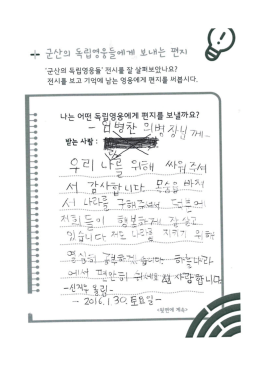 군산의 독립영웅들에게 보내는 편지
'군산의 독립영웅들' 전시를 잘 살펴보았나요?
전시를 보고 기억에 남는 영웅에게 편지를 써봅시다.
나는 어떤 독립영웅에게 편지를 보낼까요?
- 임병찬 의병장님께..
받는 사람 :
우리 나라를 위해 싸워주셔
서 감사합니다. 목숨을 바쳐
서 나라를 구해주셔서 덕분에
저희들이 행복하게 잘 살고
있습니다. 저도 나라를 지키기 위해
열심히 공부하겠습니다. 하늘나라
에서 편안히 쉬세요. 사랑합니다
올림 -
- 2016. 1. 30. 토요일 -